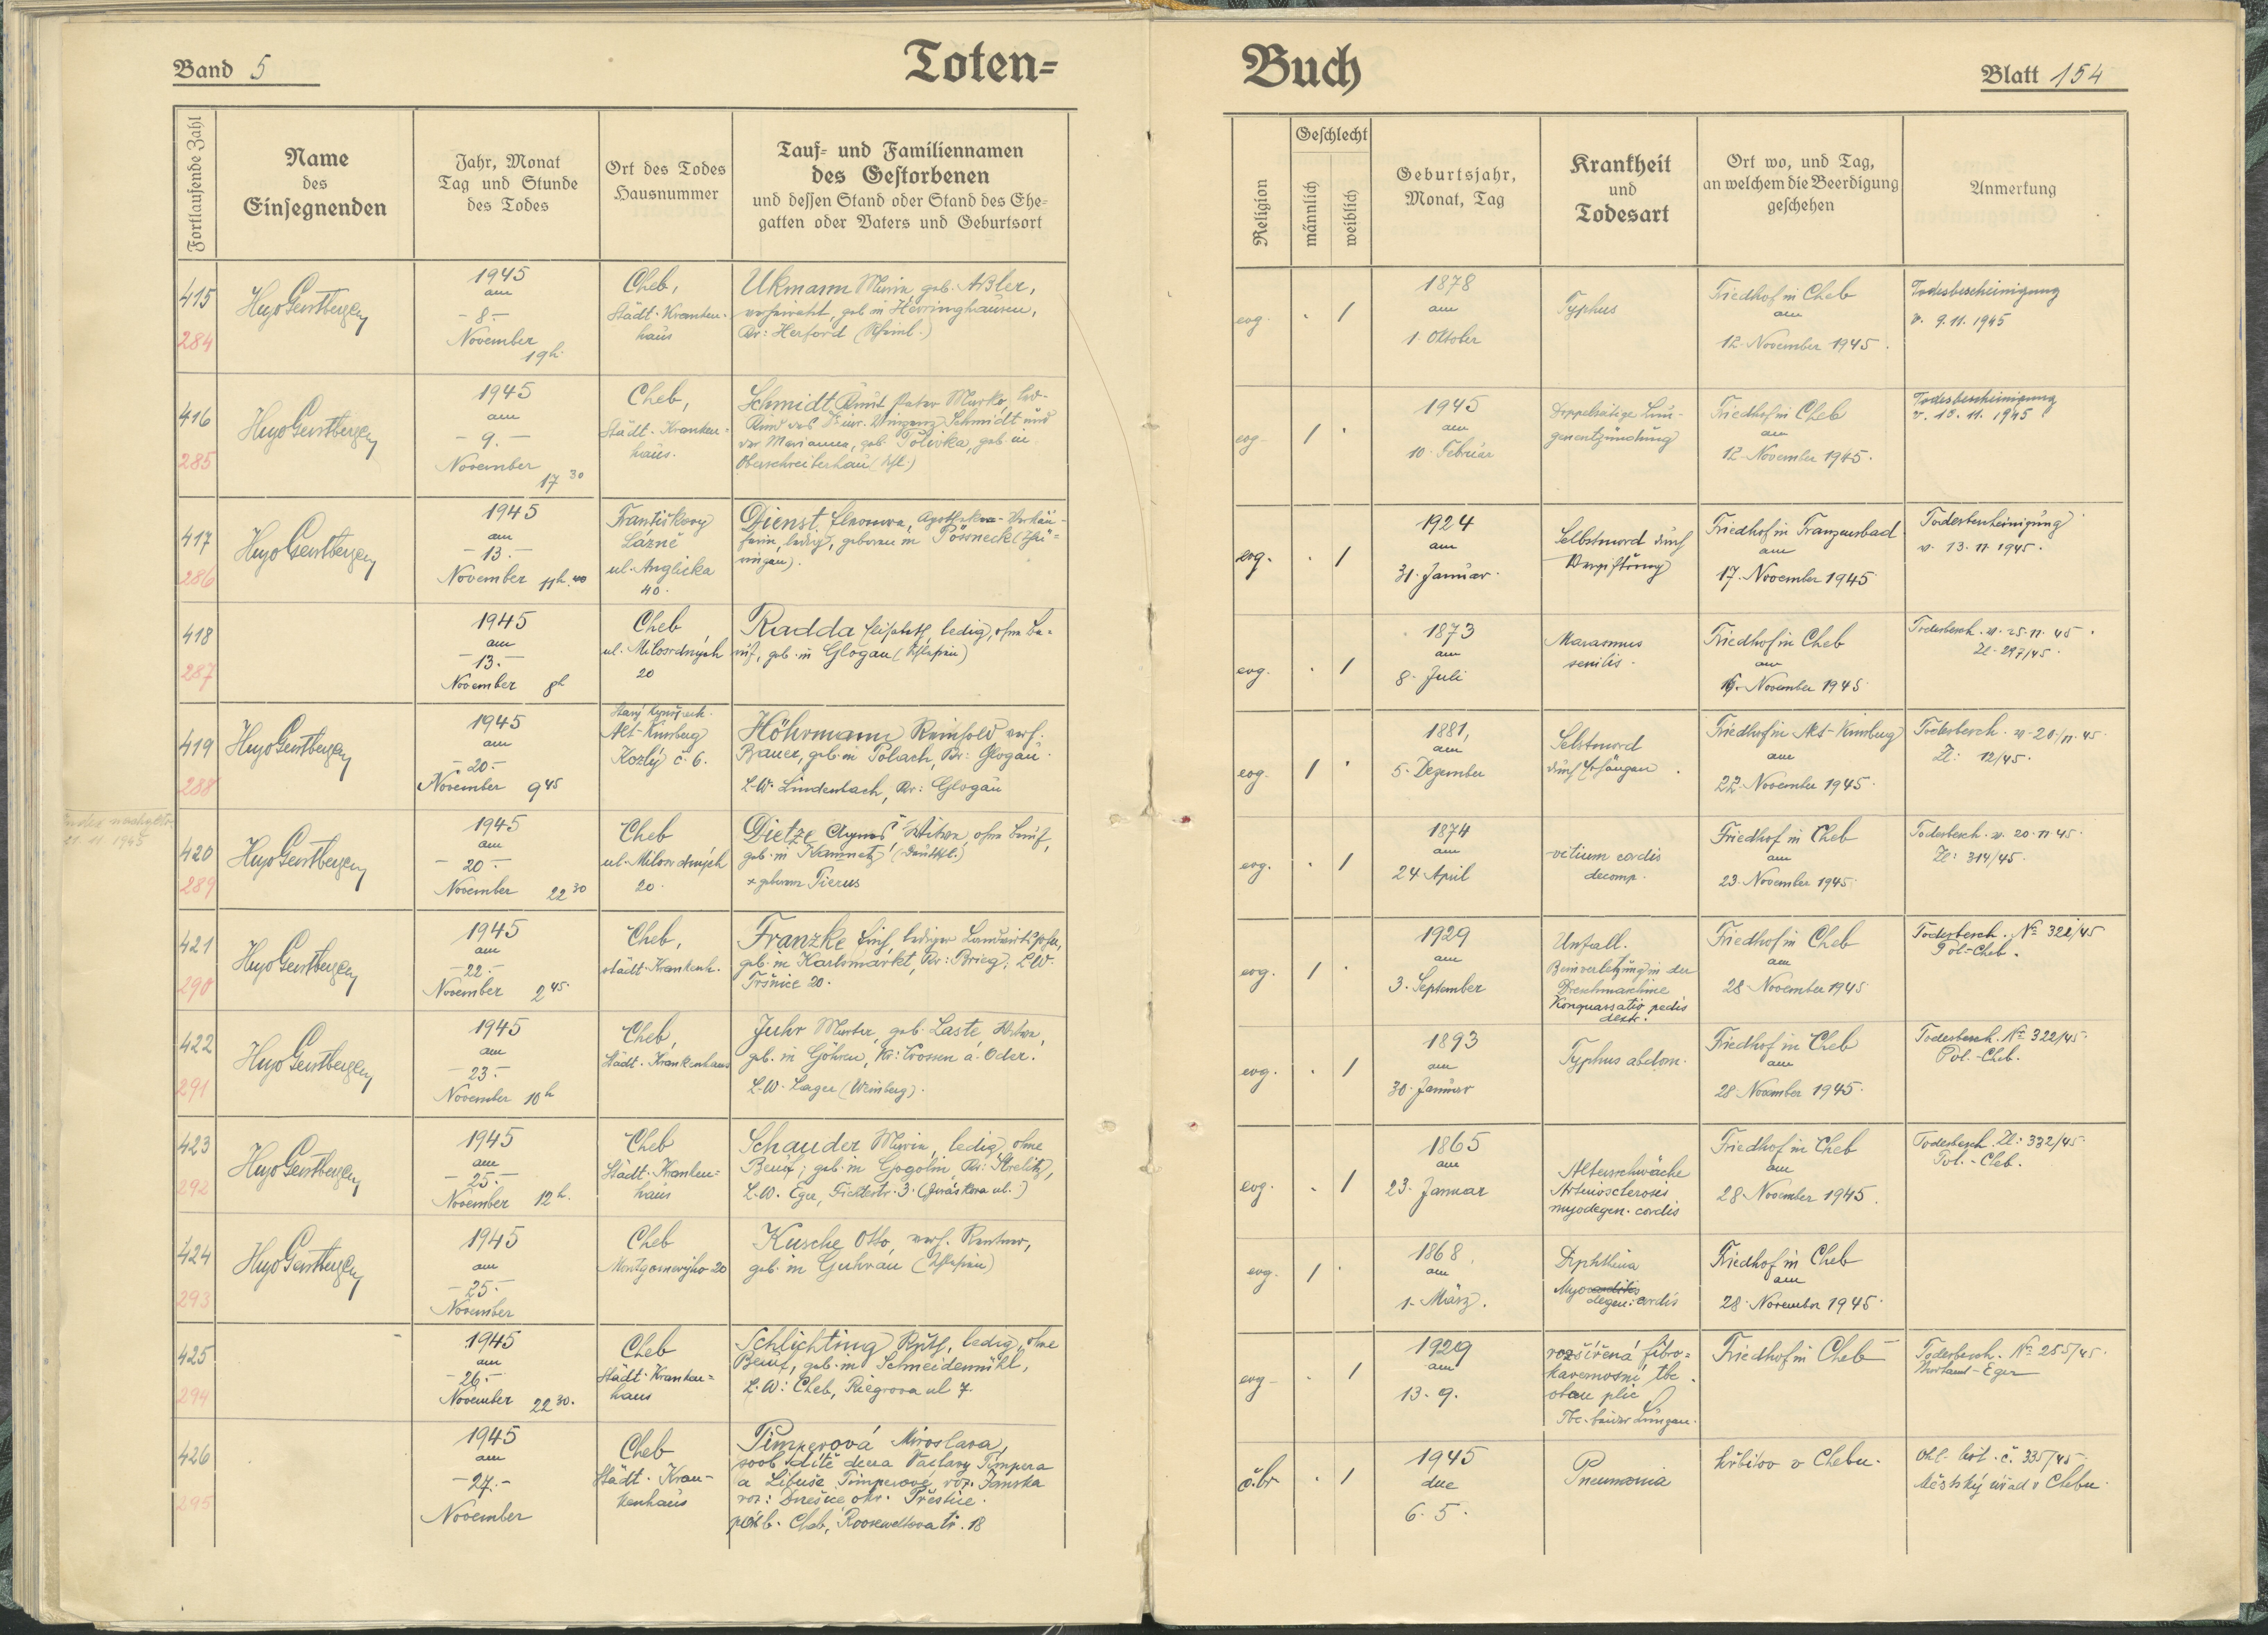 Band 5
Toten=
Fortlaufende Zahl
Name
des
Einsegnenden
Jahr, Monat
Tag und Stunde
des Todes
Ort des Todes
Hausnummer
Tauf= und Familiennamen
des Gestorbenen
und dessen Stand oder Stand des Ehe=
gatten oder Vaters und Geburtsort
415
284
1945
am
- 8. -
November
19h.
Cheb,
Städt. Kranken-
haus
Ukmann geb.
verheiratet, geb in Herringhausen,
Kr: Herford
416
285
1945
am
- 9. -
November
17 30
Cheb,
Städt. Kranken=
haus.
Schmidt
Schmidt und
der Marianna, geb. Polivka, geb in
Oberschreiberhau
417
286
1945
am
- 13. -
November 11h.40
Františkovy
Lázně
ul. Anglicka
40.
Dienst
ledig, geboren in Pössneck (Thü=
ringen).
418
287
1945
am
- 13. -
November 8h
Cheb
ul. Milosrdných
20
Radda Elisabeth, ledig, ohne Be=
ruf, geb. in Glogau (Schlesien)
419
288
1945
am
- 20. -
November 9 45
Alt-Kinsberg
Kozly č. 6.
Höhrmann Reinhold verh.
Bauer, geb. in Polach, Kr: Glogau.
L.W. Lindenbach, Kr: Glogau
21. 11. 1945
420
289
1945
am
- 20 -
November 22 30
Cheb
ul. Milosrdných
20.
Dietze Agnes, Witwe, ohne Beruf,
geb. in
× geborene Pierus
421
290
1945
am
- 22. -
November 2 45.
Cheb,
städt. Krankenh.
Franzke lediger
geb. in Karlsmarkt, Kr: Brieg, L.W.
Tršnice 20.
422
291
1945
am
- 23. -
November 10h
Cheb,
Städt. Krankenhaus
Juhr Martha, geb. Laste, Witwe,
geb. in Göhren, Kr: Crossen a. Oder.
L.W. Lager (Weinberg).
423
292
1945
am
- 25. -
November 12h.
Cheb
Städt. Kranken=
haus
Schauder Maria, ledig, ohne
Beruf, geb. in Gogolin, Kr: Strelitz,
L.W. Eger, Fichtestr. 3. (Jiráskova ul.)
424
293
1945
am
- 25. -
November
Cheb
Montgomeryho 20
Kusche Otto, verh. Rentner,
geb. in Guhrau (Schlesien)
425
294
1945
am
- 26. -
November 22 30.
Cheb
Städt. Kranken=
haus
Schlichting Ruth, ledig, ohne
Beruf, geb. in Schneidemühl,
L.W: Cheb, Riegrova ul 7.
426
295
1945
am
- 27. -
November
Cheb
Städt. Kran-
kenhaus
Pimperová Miroslava,
dítě Václava Pimpera
a Libuše Pimperové, roz. Janska
nar: okr. Přeštice.
Cheb, Rooseveltova tr. 18
Buch
Blatt 154
Religion
Geschlecht
männlich
weiblich
Geburtsjahr,
Monat, Tag
Krankheit
und
Todesart
Ort wo, und Tag,
an welchem die Beerdigung
geschehen
Anmerkung
evg. . /
1878
am
1. Oktober
Typhus
Friedhof in Cheb
am
12. November 1945.
Todesbescheinigung
v. 9.11.1945
evg. / .
1945
am
10. Februar
Doppelseitige Lun-
genentzündung
Friedhof in Cheb
am
12. November 1945.
Todesbescheinigung
v. 10. 11. 1945
evg. . /
1924
am
31. Januar.
Selbstmord durch
Vergiftung
Friedhof in Franzensbad
am
17. November 1945
Todesbescheinigung
v. 13. 11 1945.
evg. . /
1873
am
8. Juli
Marasmus
senilis.
Friedhof in Cheb
am
November 1945
Todesbesch. v. 25. 11. 45.
Zl. 297/45.
evg. / .
1881,
am
5. Dezember
Selbstmord
durch Erhängen.
Friedhof in Alt-Kinsberg
am
22. November 1945.
Todesbesch. v. 20/11. 45.
Zl: 12/45.
evg. . /
1874
am
24. April
vitium cordis
decomp.
Friedhof in Cheb
am
23. November 1945.
Todesbesch. v. 20. 11 45.
Zl: 314/45.
evg. / .
1929
am
3. September
Unfall.
Beinverletzung in der
Dreschmaschine
Konquassatio pedis
dextr.
Friedhof in Cheb
am
28. November 1945
Todesbesch. № 321/45
Pol-Cheb.
evg. . /
1893
am
30. Januar
Typhus abdom.
Friedhof in Cheb
am
28. November 1945.
Todesbesch. № 322/45.
Pol.-Cheb.
evg. . /
1865
am
23. Januar
Altersschwäche
Arteriosclerosis
myodegen. cordis
Friedhof in Cheb
am
28. November 1945.
Todesbesch. Zl: 332/45.
Pol.-Cheb.
evg. / .
1868.
am
1. März.
Diphtheria
Myocarditis
degen: cordis
Friedhof in Cheb
am
28. November 1945.
evg. . /
1929
am
13. 9.
rozšířená fibro=
kavernosní tbc
obou plic
Tbc. beider Lungen.
Friedhof in Cheb
Todesbesch. № 255/45.
Eger
čbr . /
1945
dne
6. 5.
Pneumonia
hřbitov v Chebu.
Ohl. list. č. 335/45.
Městský úřad v Chebu.